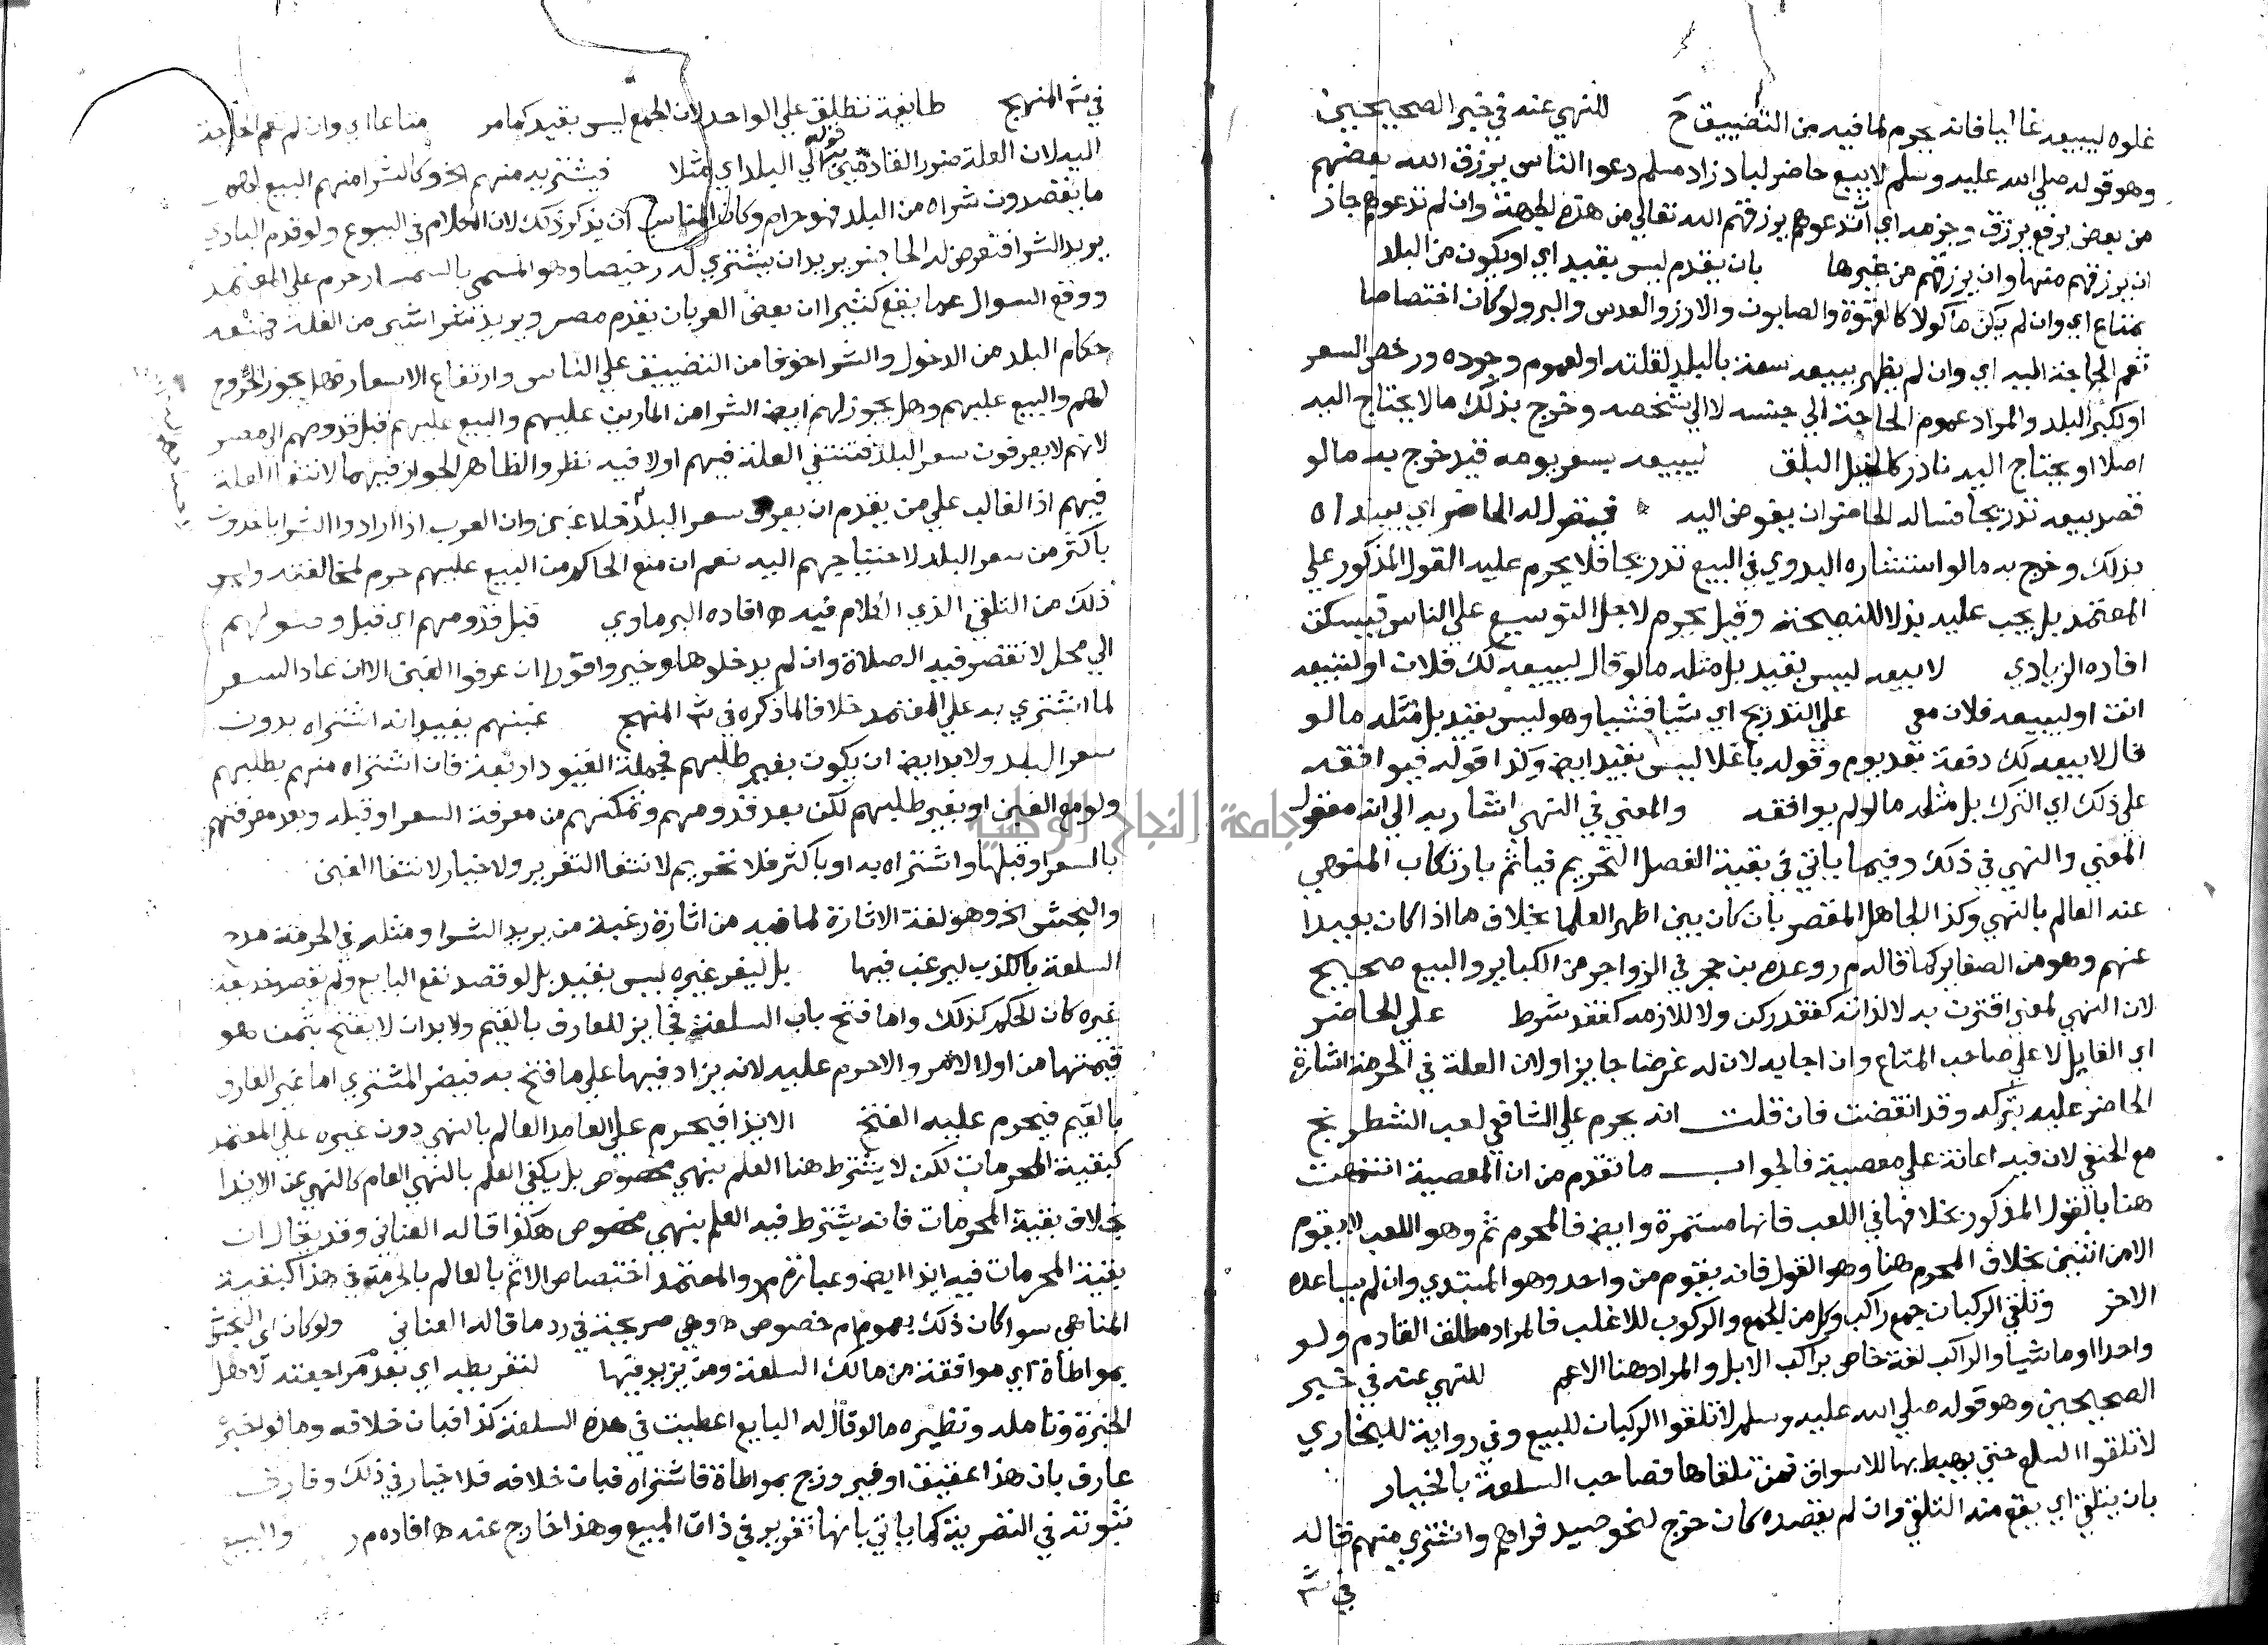 غلوه ليبيعه غاليا فانه يحرم لما فيه من التضييق ح للنهي عنه في خبر الصحيحين
وهو قوله صلي الله عليه وسلم لا يبيع حاضر لباد زاد مسلم دعوا الناس يرزق الله بعضهم
من بعض برفع يرزق وجزمه اي ان تدعوهم يرزقهم الله تعالي من هذه الجهة وان لم تدعوهم جاز
ان يرزقهم منها وان يرزقهم من غيرها بان يقدم ليس بقيد اي او يكون من البلد
بمتاع اي وان لم يكن ماكولا كالقهوة والصابون والارز والعدس والبر ولو كان اختصاصا
تعم الحاجة اليه اي وان لم يظهر ببيعه سعة بالبلد لقلته او لعموم وجوده ورخص السعر
او لكبر البلد والمراد عموم الحاجة الي جنسه لا الي شخصه وخرج بذلك ما لا يحتاج اليه
اصلا او يحتاج اليه نادر كالخيل البلق ليبيعه بسعر يومه قيد خرج به ما لو
قصد بيعه تدريجا فساله الحاضر ان يفوض اليه فيقول له الحاضر اي يبيداه
بذلك وخرج به ما لو استشاره البدوي في البيع تدريجا فلا يحرم عليه القول المذكور علي
المعتمد بل يجب عليه بذلا للنصيحة وقيل يحرم لاجل التوسيع علي الناس فيسكت
افاده الزيادي لا بيعه ليس بقيد بل مثله ما لو قال ليبيعه لك فلان او لتبيعه
انت او ليبيعه فلان معي علي التدريج اي شيا فشيا وهو ليس بقيد بل مثله ما لو
قال لا بيعه لك دفعة بعد يوم وقوله باغلا ليس بقيد ايض وكذا قوله فيوافقه
علي ذلك اي الترك بل مثله ما لو لم يوافقه والمعني في النهي اشار به الي انه معقول
المعني والنهي في ذلك وفيما ياتي في بقية الفصل التحريم فياثم بارتكاب المنهي
عنه العالم بالنهي وكذا الجاهل المقصر بان كان بين اظهر العلما بخلاف ما اذا كان بعيدا
عنهم وهو من الصغاير كما قاله م ر وعده بن حجر في الزواجر من الكباير والبيع صحيح
لان النهي لمعني اقترن به لا لذاته كفقد ركن ولا للازمه كفقد شرط علي الحاضر
اي القايل لا علي صاحب المتاع وان اجابه لان له غرضا جايزا ولان العلة في الحرمة اشارة
الحاضر عليه بتركه وقد انقضت فان قلت انه يحرم علي الشافعي لعب الشطرنج
مع الحنفي لان فيه اعانة علي معصية فالجواب ما تقدم من ان المعصية انتهت
هنا بالقول المذكور بخلافها في اللعب فانها مستمرة وايض فالمحرم ثم وهو اللعب لا يقوم
الا من اثنين بخلاف المحرم هنا وهو القول فانه يقوم من واحد وهو المبتدي وان لم يساعده
الاخر وتلقي الركبان جمع راكب وكل من الجمع والركوب للاغلب فالمراد مطلق القادم ولو
واحدا او ماشيا والراكب لغة خاص براكب الابل والمراد هنا الاعم للنهي عنه في خبر
الصحيحين وهو قوله صلي الله عليه وسلم لا تلقوا الركبان للبيع وفي رواية للبخاري
لا تلقوا السلع حتي يهبط بها للاسواق فمن تلقاها فصاحب السلعة بالخيار
بان يتلقي اي يقع منه التلقي وان لم يقصده كان خرج لنحو صيد فراهم واشتري منهم قاله
في ش
في ش المنهج طايفة تطلق علي الواحد لان الجمع ليس بقيد كما مر متاعا اي وان لم تعم الحاجة
اليه لان العلة ضرر القادمين قوله الي البلد اي مثلا فيشتريه منهم الخ وكالشرا منهم البيع لهم
ما يقصدون شراه من البلد فهو حرام وكان المناسب ان يذكر ذلك لان الكلام في البيوع ولو قدم البادي
يريد الشرا فتعرض له الحاضر يريد ان يشتري له رخيصا وهو المسمي بالسمسار حرم علي المعتمد
ووقع السوال عما يقع كثيرا ان بعض العربان يقدم مصر ويريد شرا شي من الغلة فيمنعه
حكام البلد من الدخول والشرا خوفا من التضييق علي الناس وارتفاع الاسعار فهل يجوز الخروج
لهم والبيع عليهم وهل يجوز لهم ايض الشرا من المارين عليهم والبيع عليهم قبل قدومهم الي مصر
لانهم لا يعرفون سعر البلد فتنتفي العلة فيهم او لا فيه نظر والظاهر الجواز فيهما لانتفا العلة
فيهم اذ الغالب علي من يقدم ان يعرف سعر البلد فلا غبن وان العرب اذا ارادوا الشرا ياخذون
باكثر من سعر البلد لاحتياجهم اليه نعم ان منع الحاكم من البيع عليهم حرم لمخالفته وليس
ذلك من التلقي الذي الكلام فيه ه افاده البرماوي قبل قدومهم اي قبل وصولهم
الي محل لا تقصر فيه الصلاة وان لم يدخلوها وخيروا فورا ان عرفوا الغبن الا ان عاد السعر
لما اشتري به علي المعتمد خلافا لما ذكره في ش المنهج غبنهم يفيد انه اشتراه بدون
سعر البلد ولا بد ايض ان يكون بغير طلبهم فجملة القيود اربعة فان اشتراه منهم بطلبهم
ولو مع الغبن او بغير طلبهم لكن بعد قدومهم وتمكنهم من معرفة السعر او قبله وبعد معرفتهم
بالسعر او قبلها واشتراه به او باكثر فلا تحريم لانتفا التغرير ولا خيار لانتفا الغبن
والنجش الخ وهو لغة الاثارة لما فيه من اثارة رغبة من يريد الشرا ومثله في الحرمة مدح
السلعة بالكذب ليرغب فيها بل ليغر غيره ليس بقيد بل لو قصد نفع البايع ولم يقصد خديعة
غيره كان الحكم كذلك واما فتح باب السلعة فجايز للعارف بالقيم ولا بد ان لا يفتح بثمن هو
قيمتها من اول الامر والا حرم عليه لانه يزاد فيها علي ما فتح به فيضر المشتري اما غير العارف
بالقيم فيحرم عليه الفتح الايذا فيحرم علي العامد العالم بالنهي دون غيره علي المعتمد
كبقية المحرمات لكن لا يشترط هنا العلم بنهي مخصوص بل يكفي العلم بالنهي العام كالنهي عن الايذا
بخلاف بقية المحرمات فانه يشترط فيه العلم بنهي مخصوص هكذا قاله العناني وقد يقال ان
بقية المحرمات فيه ايذا ايض وعبارة م ر والمعتمد اختصاص الاثم بالعالم بالحرمة في هذا كبقية
المناهي سوا كان ذلك بعموم ام خصوص ه وهي صريحة في رد ما قاله العناني ولو كان اي النجش
بمواطاة اي موافقة من مالك السلعة ومن يزيد فيها لتفريطه اي بعدم مراجعته لاهل
الخبرة وتامله ونظيره ما لو قال له البايع اعطيت في هذه السلعة كذا فبان خلافه وما لو اخبره
عارف بان هذا عقيق او فيروزج بمواطاة فاشتراه فبان خلافه فلا خيار في ذلك وفارق
ثبوته في التصرية كما ياتي بانها تغرير في ذات المبيع وهذا خارج عنه ه افاده م ر والبيع
جامعة النجاح الوطنية